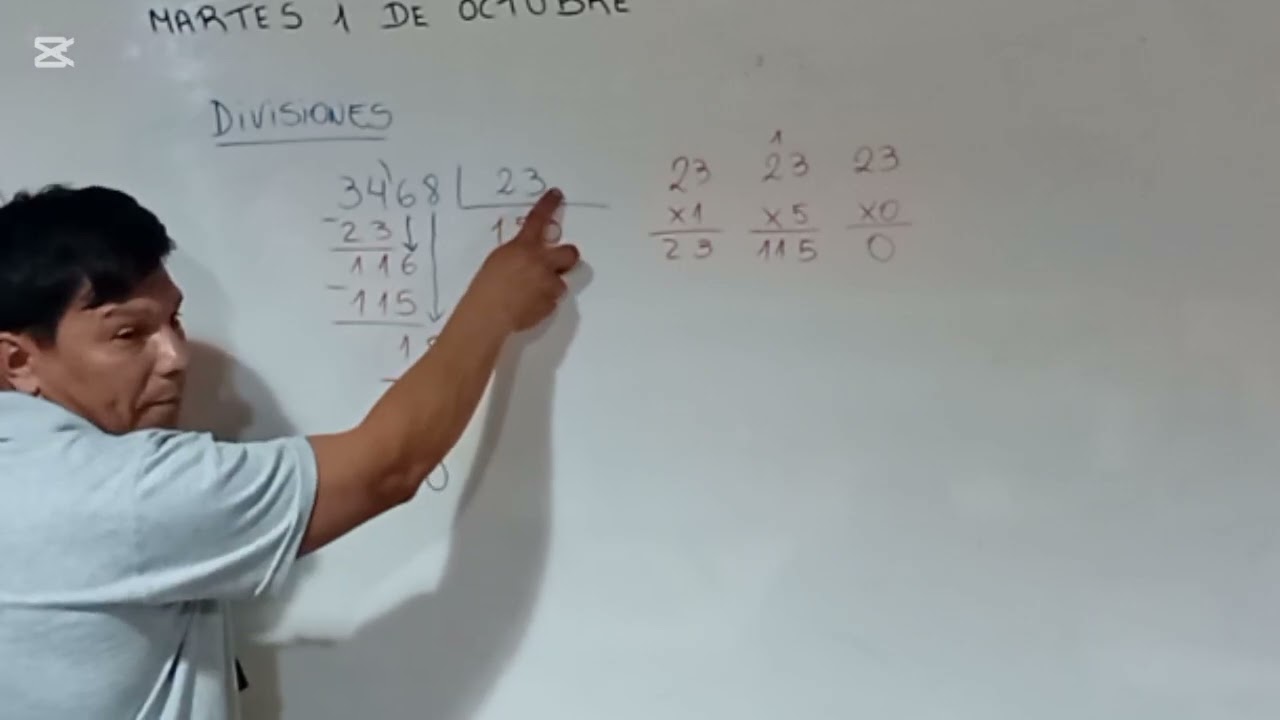 MARTES 1 DE OCTUBRE
DIVISIONES
3468 23
-23 150
116
-115
18
0
1
23 23 23
x1 x5 x0
23 115 0